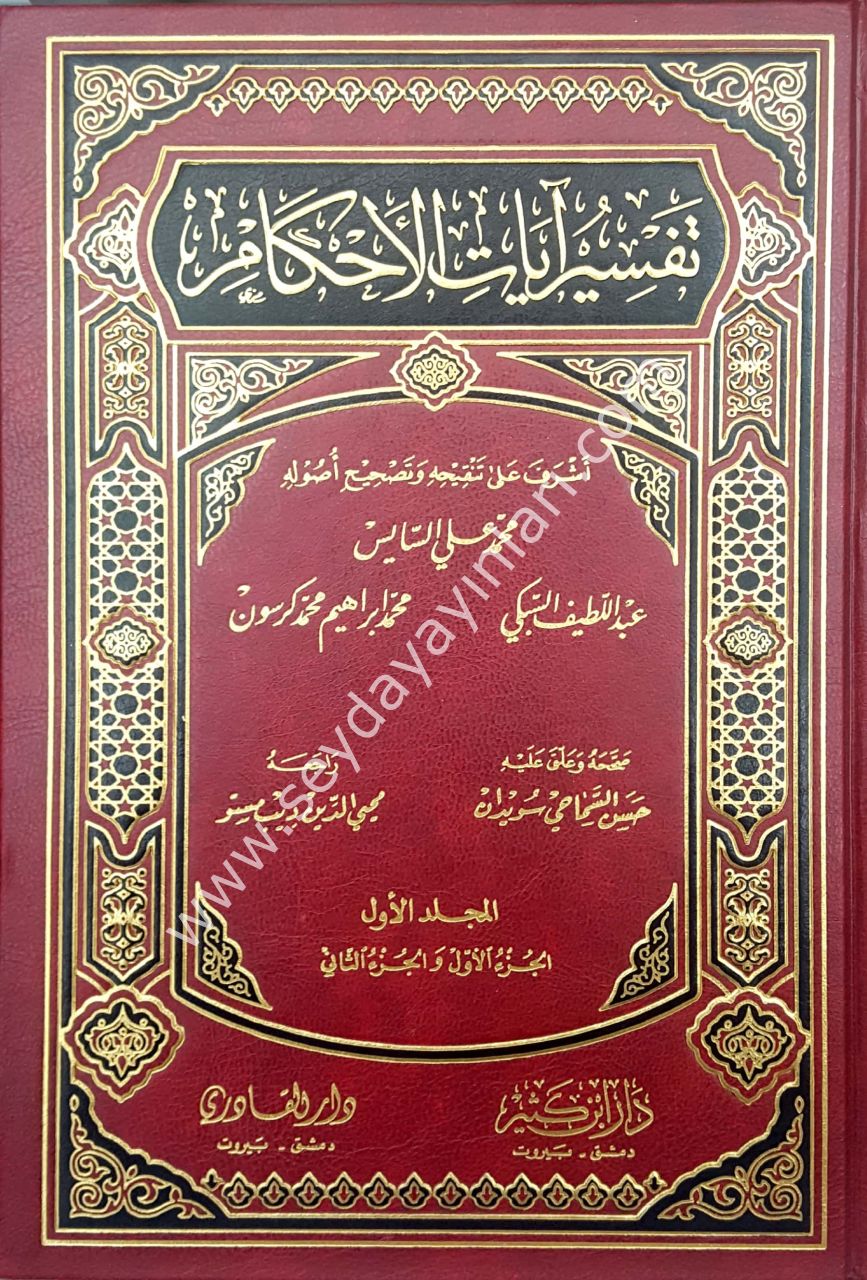 تَفسِيُر آيَاتِ الأَحْكَامِ
أَشْرَفَ عَلى تَنْقِيْحِهِ وَتَصْحِيْحِ أُصُولِهِ
محمّد علي السّايس
عبد اللّطيف السّبكي
محمّد إبراهيم محمّد كرسون
صَحَّحَهُ وَعَلّقَ عَلَيْهِ
حَسَن السَّمَاحي سُوَيدان
رَاجَعَهُ
محيي الدّين ديب مستو
المجلد الأول
الجُزءُ الأوّلُ وَ الجُزءُ الثّاني
دَار ابن كَثير
دمشق - بيروت
دار القادري
دمشق - بيروت
www.seydayayinlari.com